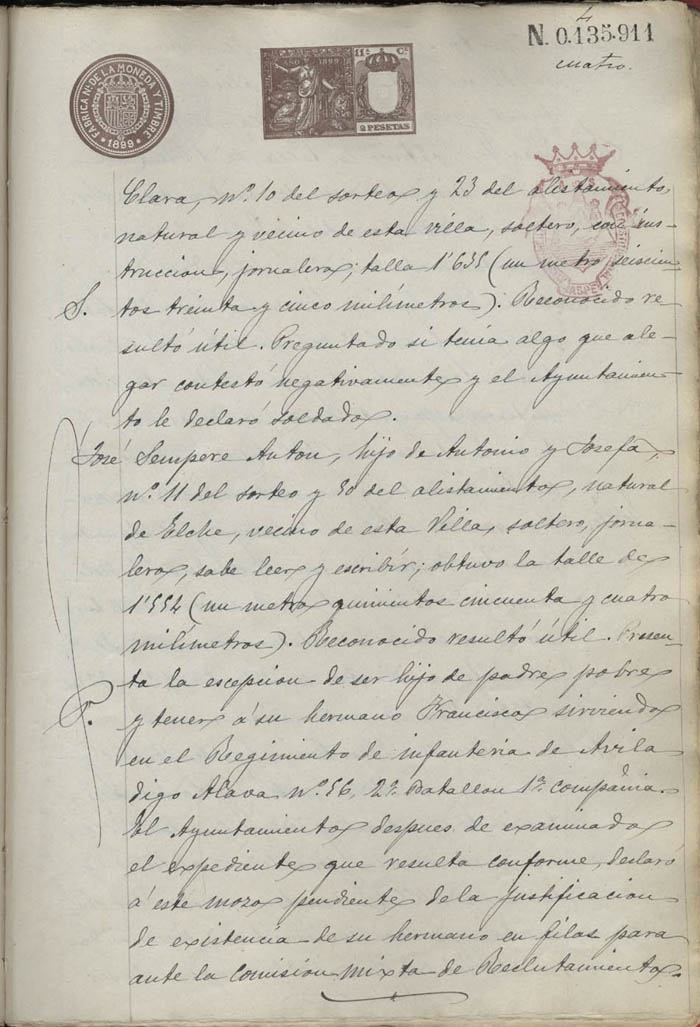 4
N. 0.135.911
cuatro.
FABRICA NAL. DE LA MONEDA Y TIMBRE
1899
AÑO 1899
11ª Cª
2 PESETAS
Clara, Nº. 10 del sorteo y 23 del alistamiento,
natural y vecino de esta villa, soltero, con ins-
truccion, jornalero; talla 1'635 (un metro seiscien-
S. tos treinta y cinco milímetros). Reconocido re-
sultó útil. Preguntado si tenía algo que ale-
gar contestó negativamente y el Ayuntamien-
to le declaró soldado.
José Sempere Anton, hijo de Antonio y Josefa,
nº. 11 del sorteo y 30 del alistamiento, natural
de Elche, vecino de esta Villa, soltero, jorna-
lero, sabe leer y escribir; obtuvo la talle de
1'554 (un metro quinientos cincuenta y cuatro
milímetros). Reconocido resultó útil. Presen-
ta la escepcion de ser hijo de padre pobre
P. y tener á su hermano Francisco sirviendo
en el Regimiento de infanteria de Avila
digo Alava Nº. 56, 2º. Batallon 1ª. compañia.
El Ayuntamiento despues de examinado
el expediente que resulta conforme, declaró
á este mozo pendiente de la justificacion
de existencia de su hermano en filas para
ante la Comisión mixta de Reclutamiento.